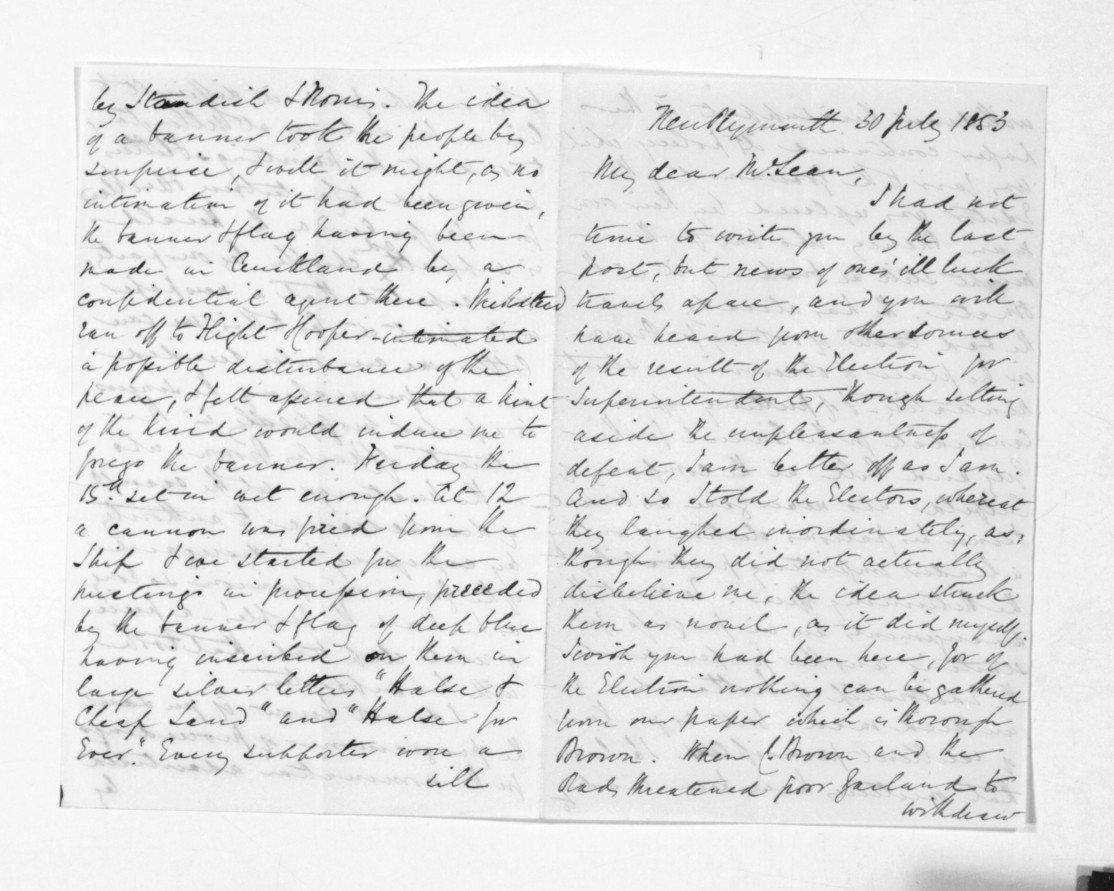 by Standish & Norris. The idea
of a banner took the people by
surprise, & well it might, as no
intimation of it had been given,
the banner & flag having been
made in Auckland by a
confidential agent there. Wicksteed
ran off to Flight Hooper intimated
a possible disturbance of the
peace, & felt assured that a hint
of the kind would induce me to
forego the banner. Friday the
15th set in wet enough. At 12
a cannon was fired from the
Ship & we started for the
hustings in procession, preceded
by the banner & flag of deep blue
having inscribed on them in
large silver letters "Halse &
Cheap Land" and "Halse for
Ever". Every supporter wore a
silk
New Plymouth 30 July 1853
My dear McLean,
I had not
time to write you by the last
post, but news of one's ill luck
travels apace, and you will
have heard from other sources
of the result of the Election for
Superintendent, though setting
aside the unpleasantness of
defeat, I am better off as I am.
And so I told the Electors, whereat
they laughed inordinately, as,
though they did not actually
disbelieve me, the idea struck
them as novel, as it did myself.
I wish you had been here, for of
the Election nothing can be gathered
from our paper which is thorough
Brown. When C. Brown and the
Rads threatened poor Garland to
withdraw